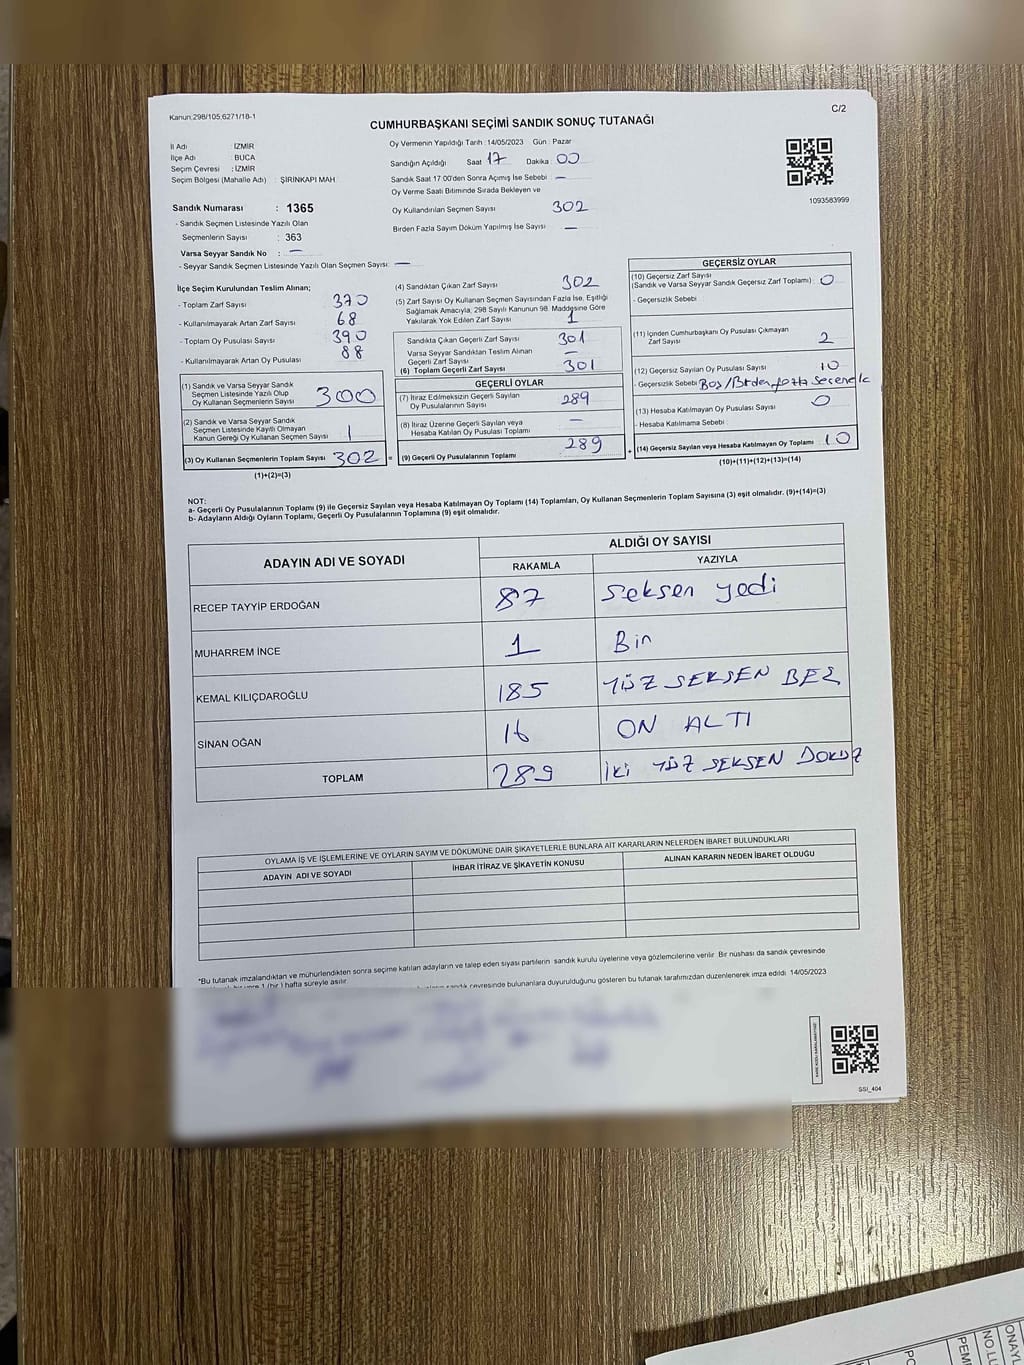 Kanun:298/105;6271/18-1
C/2
CUMHURBAŞKANI SEÇİMİ SANDIK SONUÇ TUTANAĞI
İl Adı : İZMİR
İlçe Adı : BUCA
Seçim Çevresi : İZMİR
Seçim Bölgesi (Mahalle Adı) : ŞİRİNKAPI MAH
Sandık Numarası : 1365
- Sandık Seçmen Listesinde Yazılı Olan
Seçmenlerin Sayısı : 363
Varsa Seyyar Sandık No : —
- Seyyar Sandık Seçmen Listesinde Yazılı Olan Seçmen Sayısı: —
Oy Vermenin Yapıldığı Tarih : 14/05/2023 Gün : Pazar
Sandığın Açıldığı Saat 17 Dakika 00
Sandık Saat 17:00'den Sonra Açımış İse Sebebi —
Oy Verme Saati Bitiminde Sırada Bekleyen ve
Oy Kullandırılan Seçmen Sayısı 302
Birden Fazla Sayım Döküm Yapılmış İse Sayısı —
1093583999
İlçe Seçim Kurulundan Teslim Alınan;
- Toplam Zarf Sayısı 370
- Kullanılmayarak Artan Zarf Sayısı 68
- Toplam Oy Pusulası Sayısı 390
- Kullanılmayarak Artan Oy Pusulası 88
(1) Sandık ve Varsa Seyyar Sandık
Seçmen Listesinde Yazılı Olup
Oy Kullanan Seçmenlerin Sayısı 300
(2) Sandık ve Varsa Seyyar Sandık
Seçmen Listesinde Kayıtlı Olmayan
Kanun Gereği Oy Kullanan Seçmen Sayısı 1
(3) Oy Kullanan Seçmenlerin Toplam Sayısı 302 =
(1)+(2)=(3)
(4) Sandıktan Çıkan Zarf Sayısı 302
(5) Zarf Sayısı Oy Kullanan Seçmen Sayısından Fazla İse, Eşitliği
Sağlamak Amacıyla, 298 Sayılı Kanunun 98. Maddesine Göre
Yakılarak Yok Edilen Zarf Sayısı 1
Sandıkta Çıkan Geçerli Zarf Sayısı 301
Varsa Seyyar Sandıktan Teslim Alınan
Geçerli Zarf Sayısı —
(6) Toplam Geçerli Zarf Sayısı 301
GEÇERLİ OYLAR
(7) İtiraz Edilmeksizin Geçerli Sayılan
Oy Pusulasının Sayısı 289
(8) İtiraz Üzerine Geçerli Sayılan veya
Hesaba Katılan Oy Pusulası Toplamı —
(9) Geçerli Oy Pusulalarının Toplamı 289 +
GEÇERSİZ OYLAR
(10) Geçersiz Zarf Sayısı
(Sandık ve Varsa Seyyar Sandık Geçersiz Zarf Toplamı) : 0
- Geçersizlik Sebebi :
(11) İçinden Cumhurbaşkanı Oy Pusulası Çıkmayan
Zarf Sayısı 2
(12) Geçersiz Sayılan Oy Pusulası Sayısı 10
- Geçersizlik Sebebi Boş/Birden fazla seçenek
(13) Hesaba Katılmayan Oy Pusulası Sayısı 0
- Hesaba Katılmama Sebebi :
(14) Geçersiz Sayılan veya Hesaba Katılmayan Oy Toplamı 10
(10)+(11)+(12)+(13)=(14)
NOT:
a- Geçerli Oy Pusulalarının Toplamı (9) ile Geçersiz Sayılan veya Hesaba Katılmayan Oy Toplamı (14) Toplamları, Oy Kullanan Seçmenlerin Toplam Sayısına (3) eşit olmalıdır. (9)+(14)=(3)
b- Adayların Aldığı Oyların Toplamı, Geçerli Oy Pusulalarının Toplamına (9) eşit olmalıdır.
ADAYIN ADI VE SOYADI ALDIĞI OY SAYISI
RAKAMLA YAZIYLA
RECEP TAYYİP ERDOĞAN 87 Seksen yedi
MUHARREM İNCE 1 Bir
KEMAL KILIÇDAROĞLU 185 YÜZ SEKSEN BEŞ
SİNAN OĞAN 16 ON ALTI
TOPLAM 289 İKİ YÜZ SEKSEN DOKUZ
OYLAMA İŞ VE İŞLEMLERİNE VE OYLARIN SAYIM VE DÖKÜMÜNE DAİR ŞİKAYETLERLE BUNLARA AİT KARARLARIN NELERDEN İBARET BULUNDUKLARI
ADAYIN ADI VE SOYADI İHBAR İTİRAZ VE ŞİKAYETİN KONUSU ALINAN KARARIN NEDEN İBARET OLDUĞU
*Bu tutanak imzalandıktan ve mühürlendikten sonra seçime katılan adayların ve talep eden siyasi partilerin sandık kurulu üyelerine veya gözlemcilerine verilir. Bir nüshası da sandık çevresinde
1 (bir ) hafta süreyle asılır.
sandık çevresinde bulunanlara duyurulduğunu gösteren bu tutanak tarafımızdan düzenlenerek imza edildi. 14/05/2023
SSİ_404
ONAY
NO LU
PEM